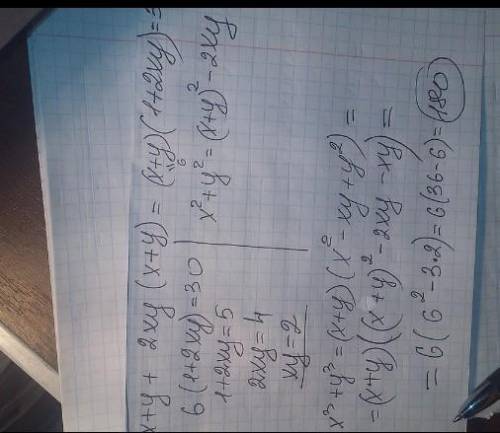 x+y + 2xy (x+y) = (x+y)(1+2xy)=3
6
6(1+2xy)=30
1+2xy=5
2xy=4
xy=2
x²+y² = (x+y)² - 2xy
x³+y³ = (x+y)(x² - xy + y²) =
= (x+y)((x+y)² - 2xy - xy) =
= 6(6² - 3·2) = 6(36-6) = 180